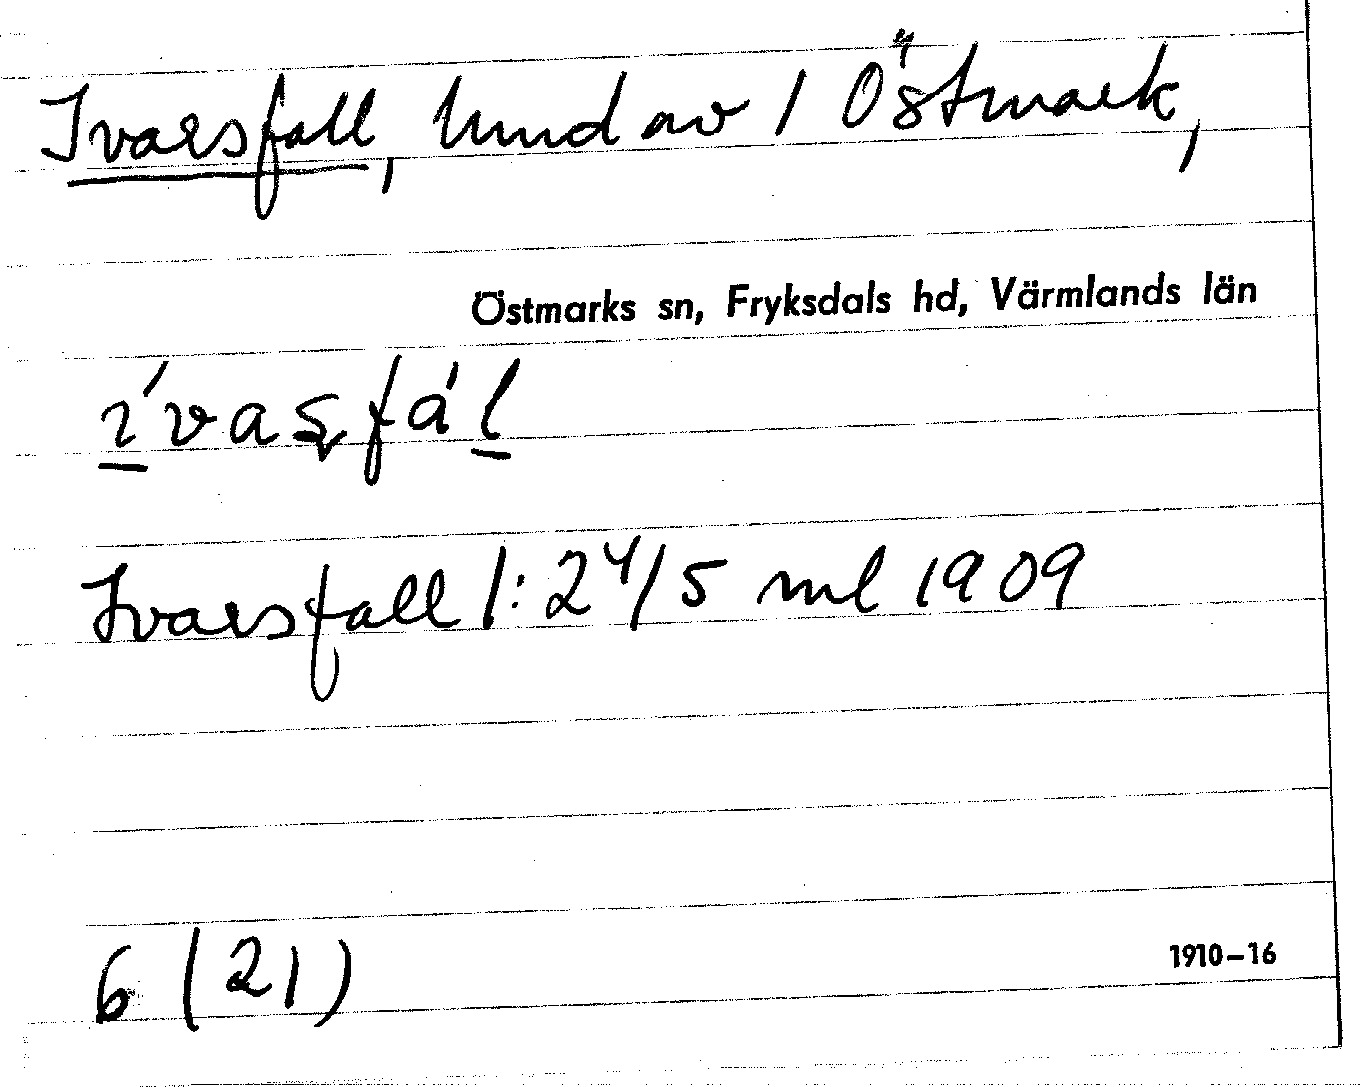 Ivarsfall, hmd av 1 Östmark,
Östmarks sn, Fryksdals hd, Värmlands län
Ivarsfall 1:24/5 ml 1909
6 (21)
1910–16